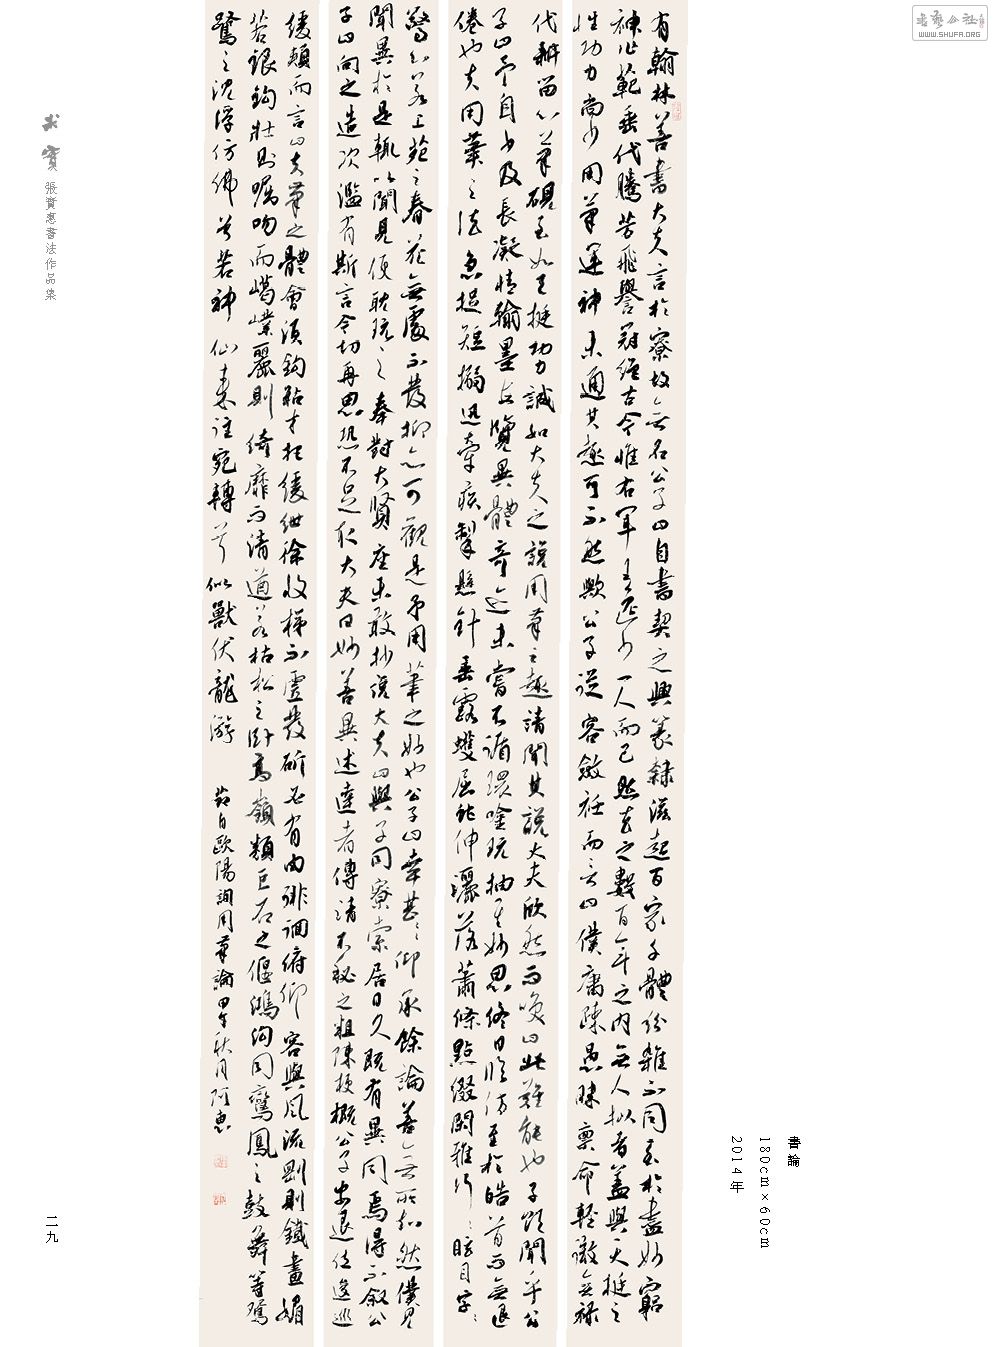 求寶 張寶惠書法作品集
有翰林善書大夫言於寮故無名公子曰自書契之興篆隸滋起百家千體紛雜不同至於盡妙窮
神作範垂代騰芳飛譽冠絕古今惟右軍王逸少一人而已然去之數百年之內無人擬者蓋與天挺之
性功力尚少用筆運神未通其趣可不然歟公子從容斂衽而言曰僕庸疎愚昧稟命輕微無祿
代耕留心筆硯至如天挺功力誠如大夫之說用筆之趣請聞其說大夫欣然而笑曰此難能也子欲聞乎公
子曰予自少及長凝情翰墨每覽異體奇迹未嘗不循環吟玩抽其妙思終日臨仿至於皓首而無退
倦也夫用筆之法急捉短搦迅牽疾掣懸針垂露蠖屈蛇伸灑落蕭條點綴閑雅行〻眩目字〻
驚心若上苑之春花無處不發抑亦可觀是予用筆之妙也公子曰幸甚〻仰承餘論善無所加然僕見
聞異於是輒以聞見便耽玩〻之奉對大賢座未敢抄說大夫曰與子同寮索居日久既有異同焉得不敘公
子曰向之造次濫有斯言今切再思恐不足取大夫曰妙善異述達者傳請不秘之粗陳梗概公子安退位逡巡
緩頰而言曰夫筆之體會須鉤粘才把緩紲徐收梯不虛發斫必有由徘徊俯仰容與風流剛則鐵畫媚
若銀鉤壯則啒吻而嶱嶫麗則綺靡而清遒若枯松之臥高嶺類巨石之偃鴻溝同鸞鳳之鼓舞等鴛
鷺之沈浮仿佛兮若神仙來往宛轉兮似獸伏龍游 節自歐陽詢用筆論甲午秋月阿惠
書論
180cm×60cm
2014年
二九
書藝公社
WWW.SHUFA.ORG